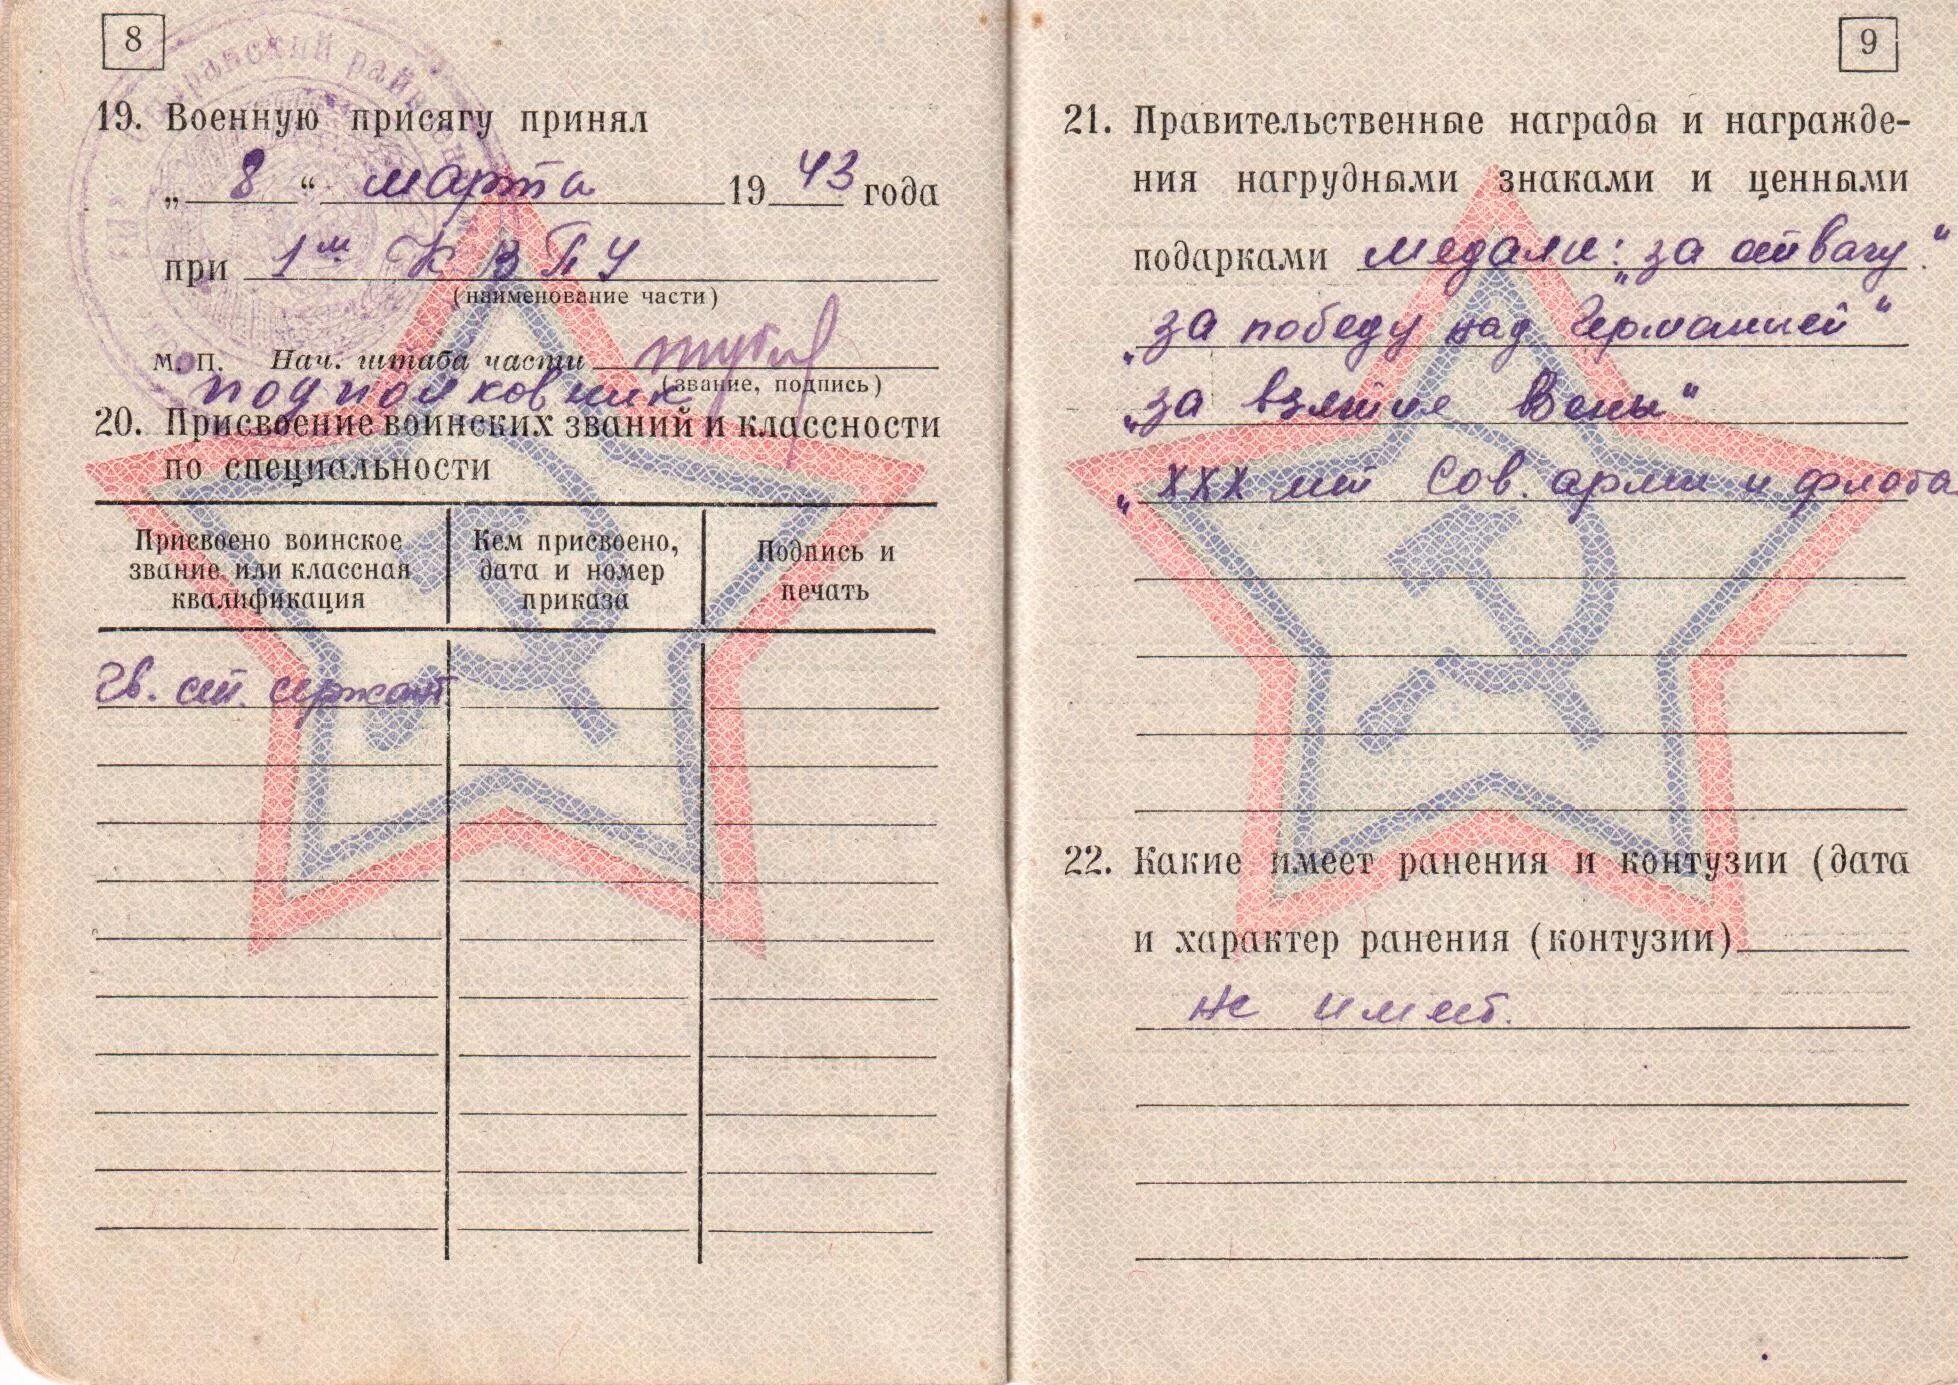 8
19. Военную присягу принял
„ 8 “ марта 1943 года
при 1м КВПУ
(наименование части)
М. П. Нач. штаба части
(звание, подпись)
подполковник
20. Присвоение воинских званий и классности
по специальности
Присвоено воинское звание или классная квалификация
Кем присвоено, дата и номер приказа
Подпись и печать
Гв. ст. сержант
9
21. Правительственные награды и награжде-
ния нагрудными знаками и ценными
подарками медали: „за отвагу“
„за победу над Германией“
„за взятие Вены“
„XXX лет Сов. армии и флота
22. Какие имеет ранения и контузии (дата
и характер ранения (контузии)
не имеет.